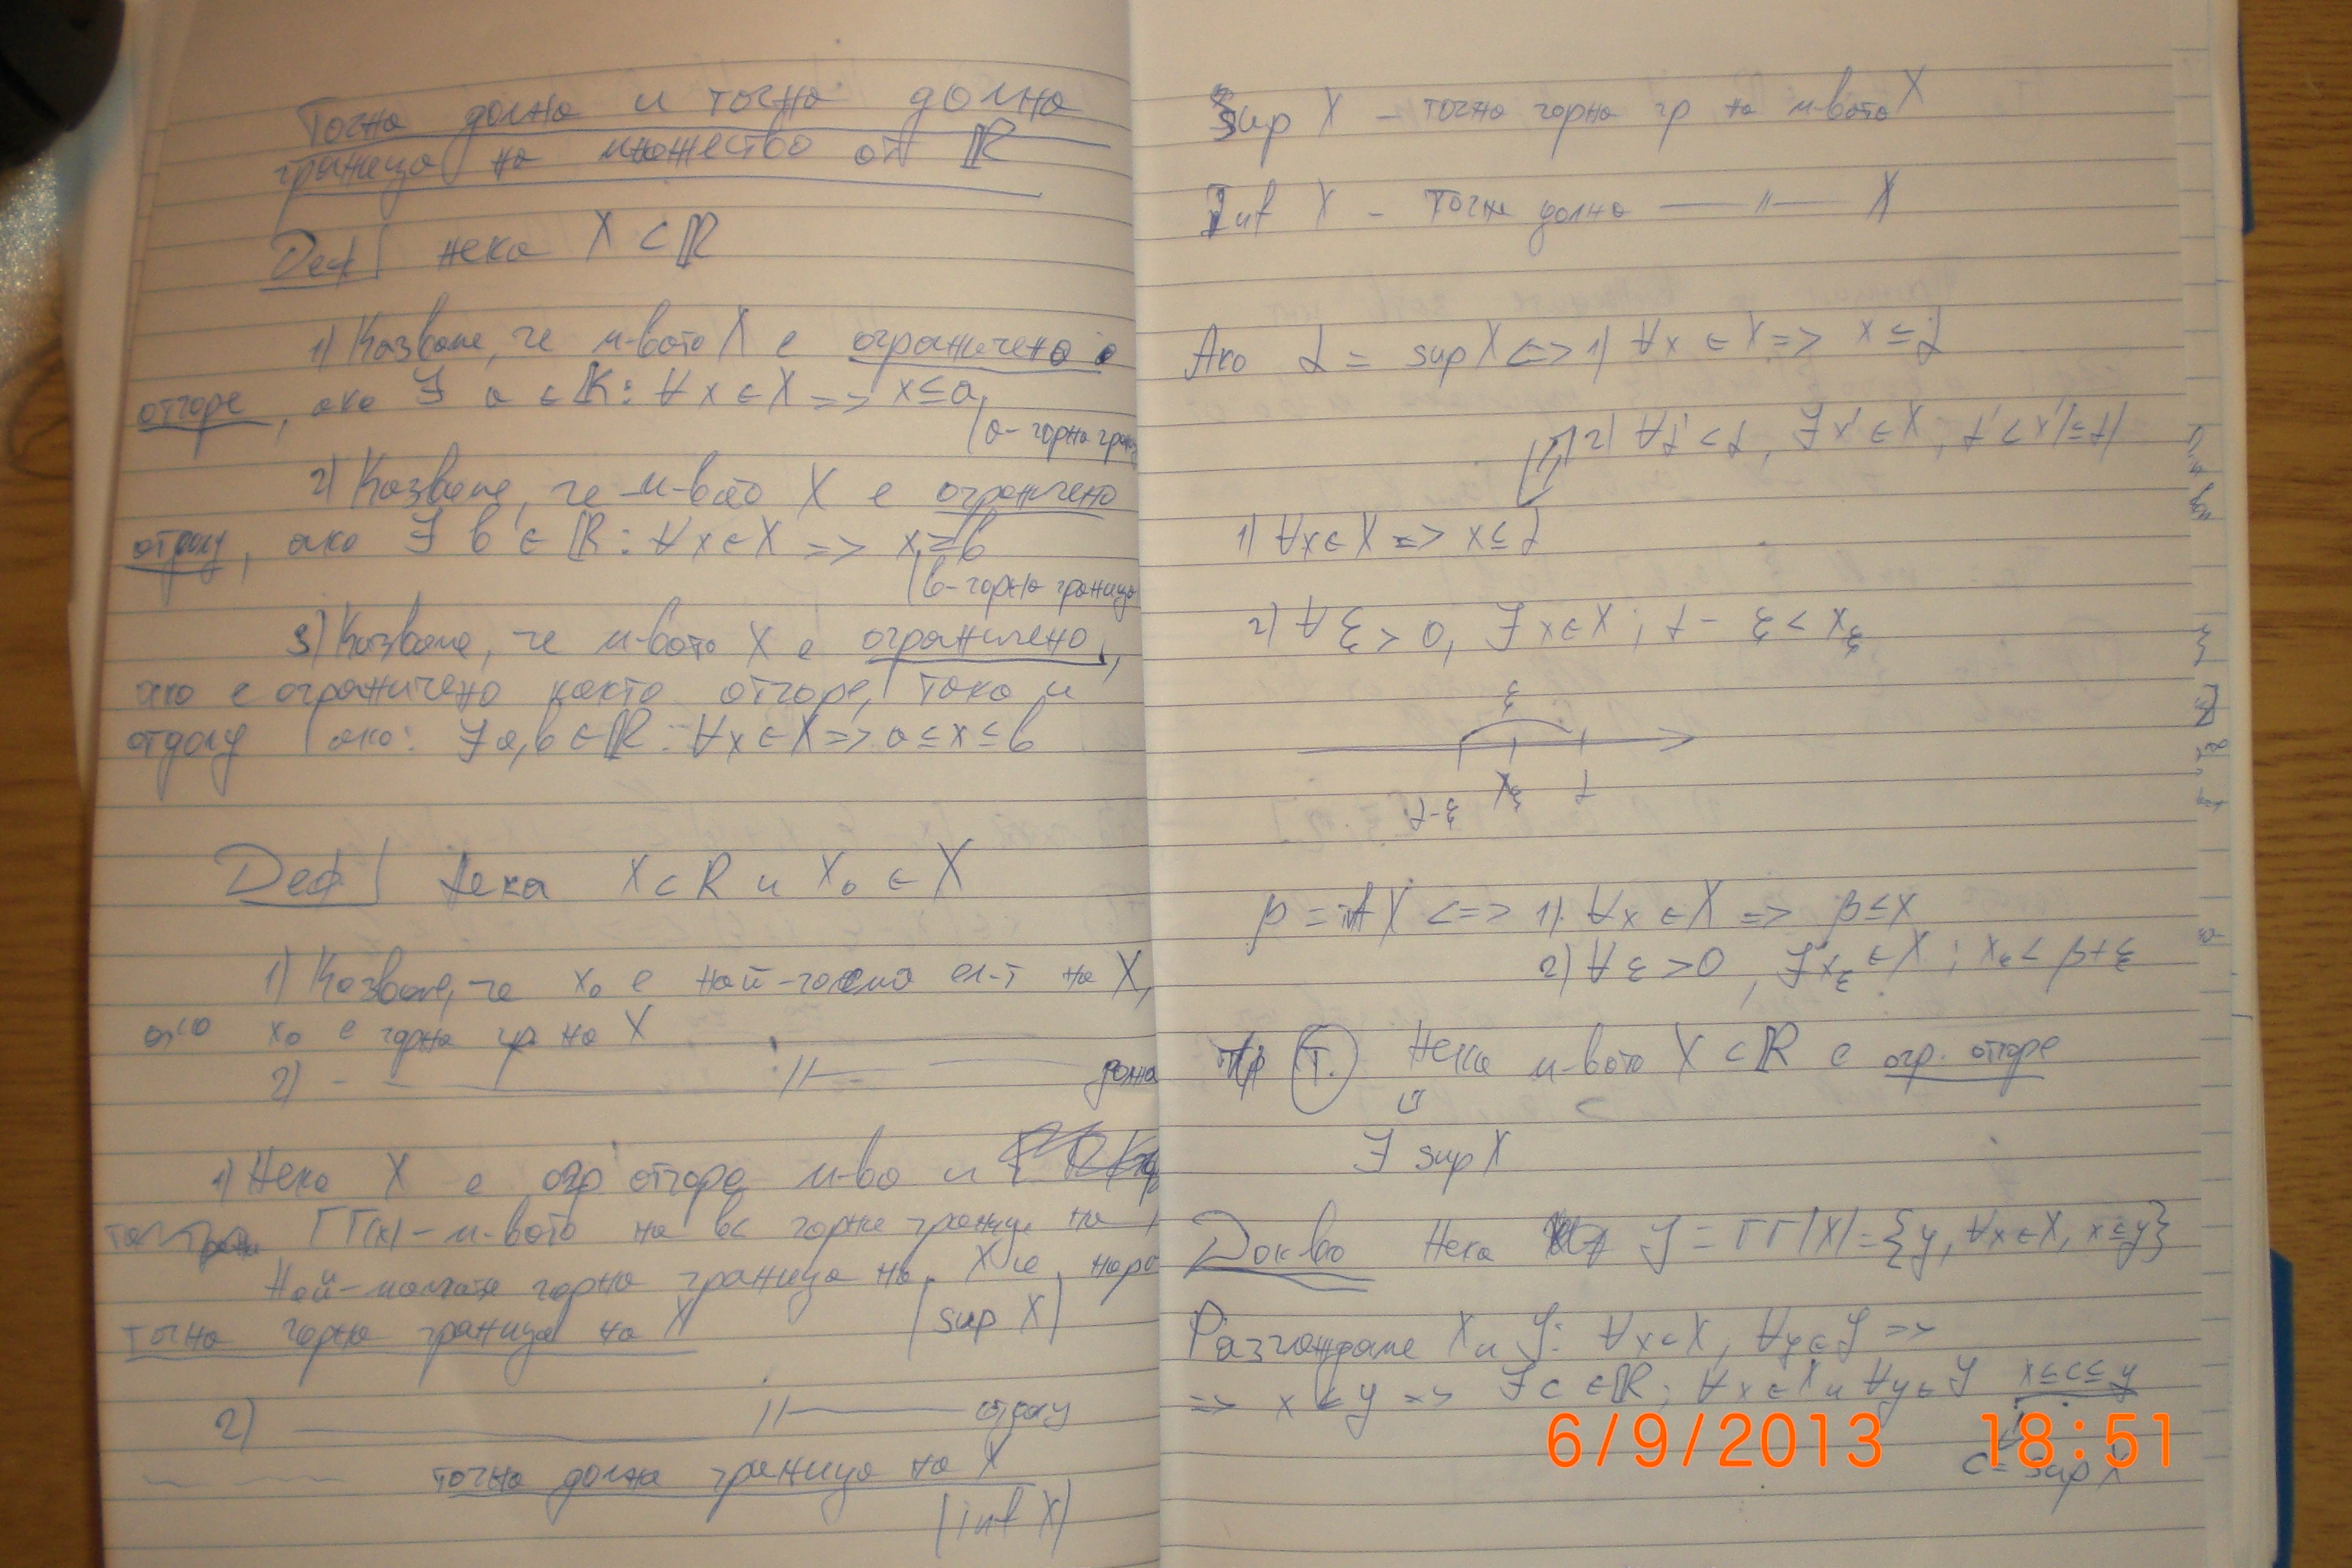 Точна долна и точна долна
граница на множество от ℝ
Деф| нека X ⊂ ℝ
1) Казваме, че м-вото X е ограничено
отгоре, ако ∃ a ∈ ℝ: ∀x ∈ X => x ≤ a,
(a- горна гран
2) Казваме, че м-вото X е ограничено
отдолу, ако ∃ b ∈ ℝ: ∀x ∈ X => x ≥ b
(b- горна граница
3) Казваме, че м-вото X е ограничено,
ако е ограничено както отгоре, така и
отдолу (ако: ∃ a,b ∈ ℝ: ∀x ∈ X => a ≤ x ≤ b
Деф| Нека X ⊂ R и x₀ ∈ X
1) Казваме, че x₀ е най-голямо ел-т на X,
ако x₀ е горна гр. на X
2) - —— // —— долна
1) Нека X е огр отгоре м-во и
ГГ(x) - м-вото на вс горни граници на
Най-малката горна граница на X се нар
точна горна граница на X (sup X)
2) —— // —— отдолу
точна долна граница на X
(inf X)
Sup X - точна горна гр на м-вото X
Inf X - точна долна —— // —— X
Ако α = sup X <=> 1) ∀x ∈ X => x ≤ α
2) ∀α' < α, ∃x' ∈ X; α' < x' (≤ α)
1) ∀x ∈ X => x ≤ α
2) ∀ε > 0, ∃x ∈ X; α - ε < xε
ε
α-ε xε α
β = inf X <=> 1) ∀x ∈ X => β ≤ x
2) ∀ε > 0, ∃xε ∈ X; xε < β+ε
Т. Нека м-вото X ⊂ ℝ е огр. отгоре
∃ sup X
Док-во Нека Y = ГГ(X) = {y, ∀x ∈ X, x ≤ y}
Разглеждаме X и Y: ∀x ∈ X, ∀y ∈ Y =>
=> x ≤ y => ∃ c ∈ ℝ; ∀x ∈ X и ∀y ∈ Y x ≤ c ≤ y
c = sup X
6/9/2013 18:51